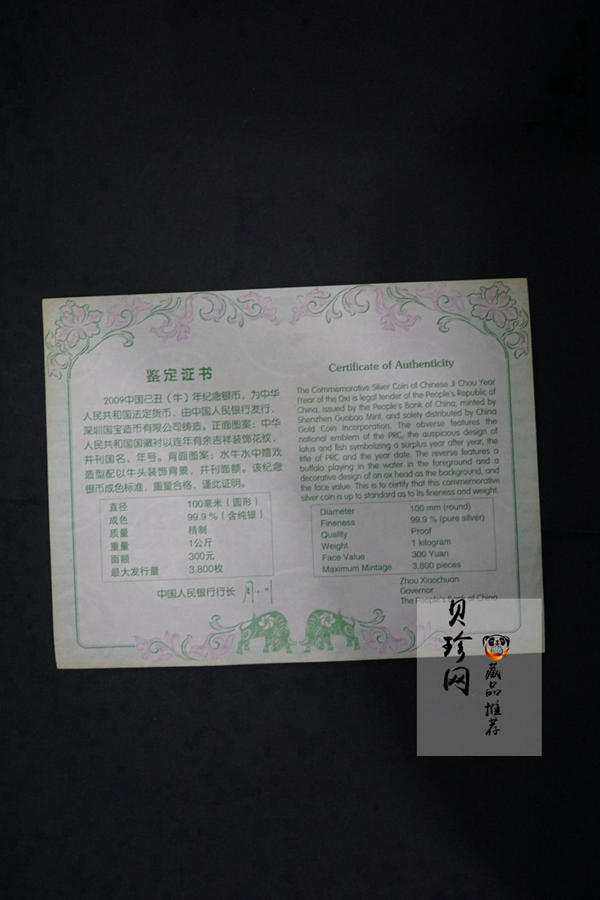 鉴定证书
2009中国己丑（牛）年纪念银币，为中华
人民共和国法定货币，由中国人民银行发行，
深圳国宝造币有限公司铸造。正面图案：中华
人民共和国国徽衬以连年有余吉祥装饰花纹，
并刊国名、年号。背面图案：水牛水中嬉戏
造型配以牛头装饰背景，并刊面额。该纪念
银币成色标准，重量合格，谨此证明。
直径 100毫米（圆形）
成色 99.9％（含纯银）
质量 精制
重量 1公斤
面额 300元
最大发行量 3,800枚
中国人民银行行长
Certificate of Authenticity
The Commemorative Silver Coin of Chinese Ji Chou Year
(Year of the Ox) is legal tender of the People's Republic of
China, issued by the People's Bank of China, minted by
Shenzhen Guobao Mint, and solely distributed by China
Gold Coin Incorporation. The obverse features the
national emblem of the PRC, the auspicious design of
lotus and fish symbolizing a surplus year after year, the
title of PRC and the year date. The reverse features a
buffalo playing in the water in the foreground and a
decorative design of an ox head as the background, and
the face value. This is to certify that this commemorative
silver coin is up to standard as to its fineness and weight.
Diameter 100 mm (round)
Fineness 99.9 % (pure silver)
Quality Proof
Weight 1 kilogram
Face Value 300 Yuan
Maximum Mintage 3,800 pieces
Zhou Xiaochuan
Governor
The People's Bank of China
贝珍网
藏品推荐